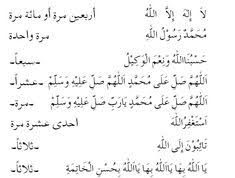 لاَ إِلَهَ إِلاَّ اللهُ أربعين مرة أو مائة مرة
مُحَمَّدٌ رَسُوْلُ اللهِ مرة واحدة
حَسْبُنَااللهُ وَنِعْمَ الْوَكِيْلُ -سبعاً-
اَللّهُمَّ صَلِّ عَلَى مُحَمَّدٍ اَللّهُمَّ صَلِّ عَلَيْهِ وَسَلِّمْ -عشراً-
اَللّهُمَّ صَلِّ عَلَى مُحَمَّدٍ يَارَبِّ صَلِّ عَلَيْهِ وَسَلِّمْ -مرة-
أَسْتَغْفِرُاللهَ احدى عشرة مرة
تَائِبُوْنَ إِلَى اللهِ -ثلاثاً-
يَا اَللهُ بِهَا يَااَللهُ بِهَا يَااَللهُ بِحُسْنِ الْخَاتِمَةِ -ثلاثاً-